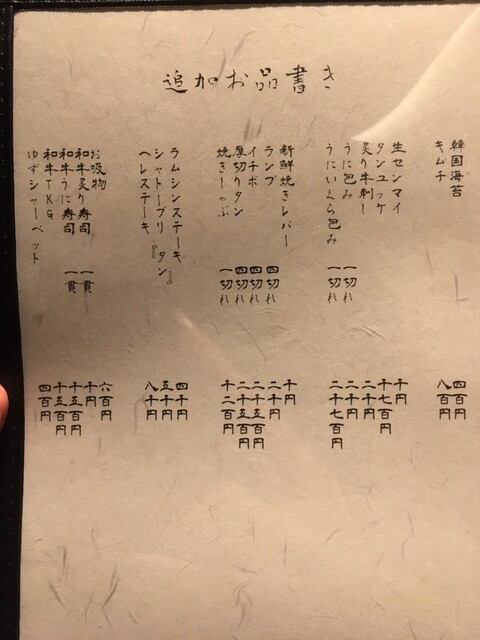 追加お品書き
韓国海苔 四百円
キムチ 八百円
生センマイ 千円
タンユッケ 千七百円
炙り牛刺し 二千円
うに包み 一切れ 二千円
うにいくら包み 一切れ 二千七百円
新鮮焼きレバー 千円
ランプ 四切れ 二千円
イチボ 四切れ 二千五百円
厚切りタン 四切れ 二千五百円
焼きしゃぶ 一切れ 千二百円
ラムシンステーキ 四千円
シャトーブリ『タン』 五千円
ヘレステーキ 八千円
お吸物 六百円
和牛炙り寿司 一貫 千円
和牛うに寿司 一貫 千五百円
和牛TKG 千五百円
ゆずシャーベット 四百円